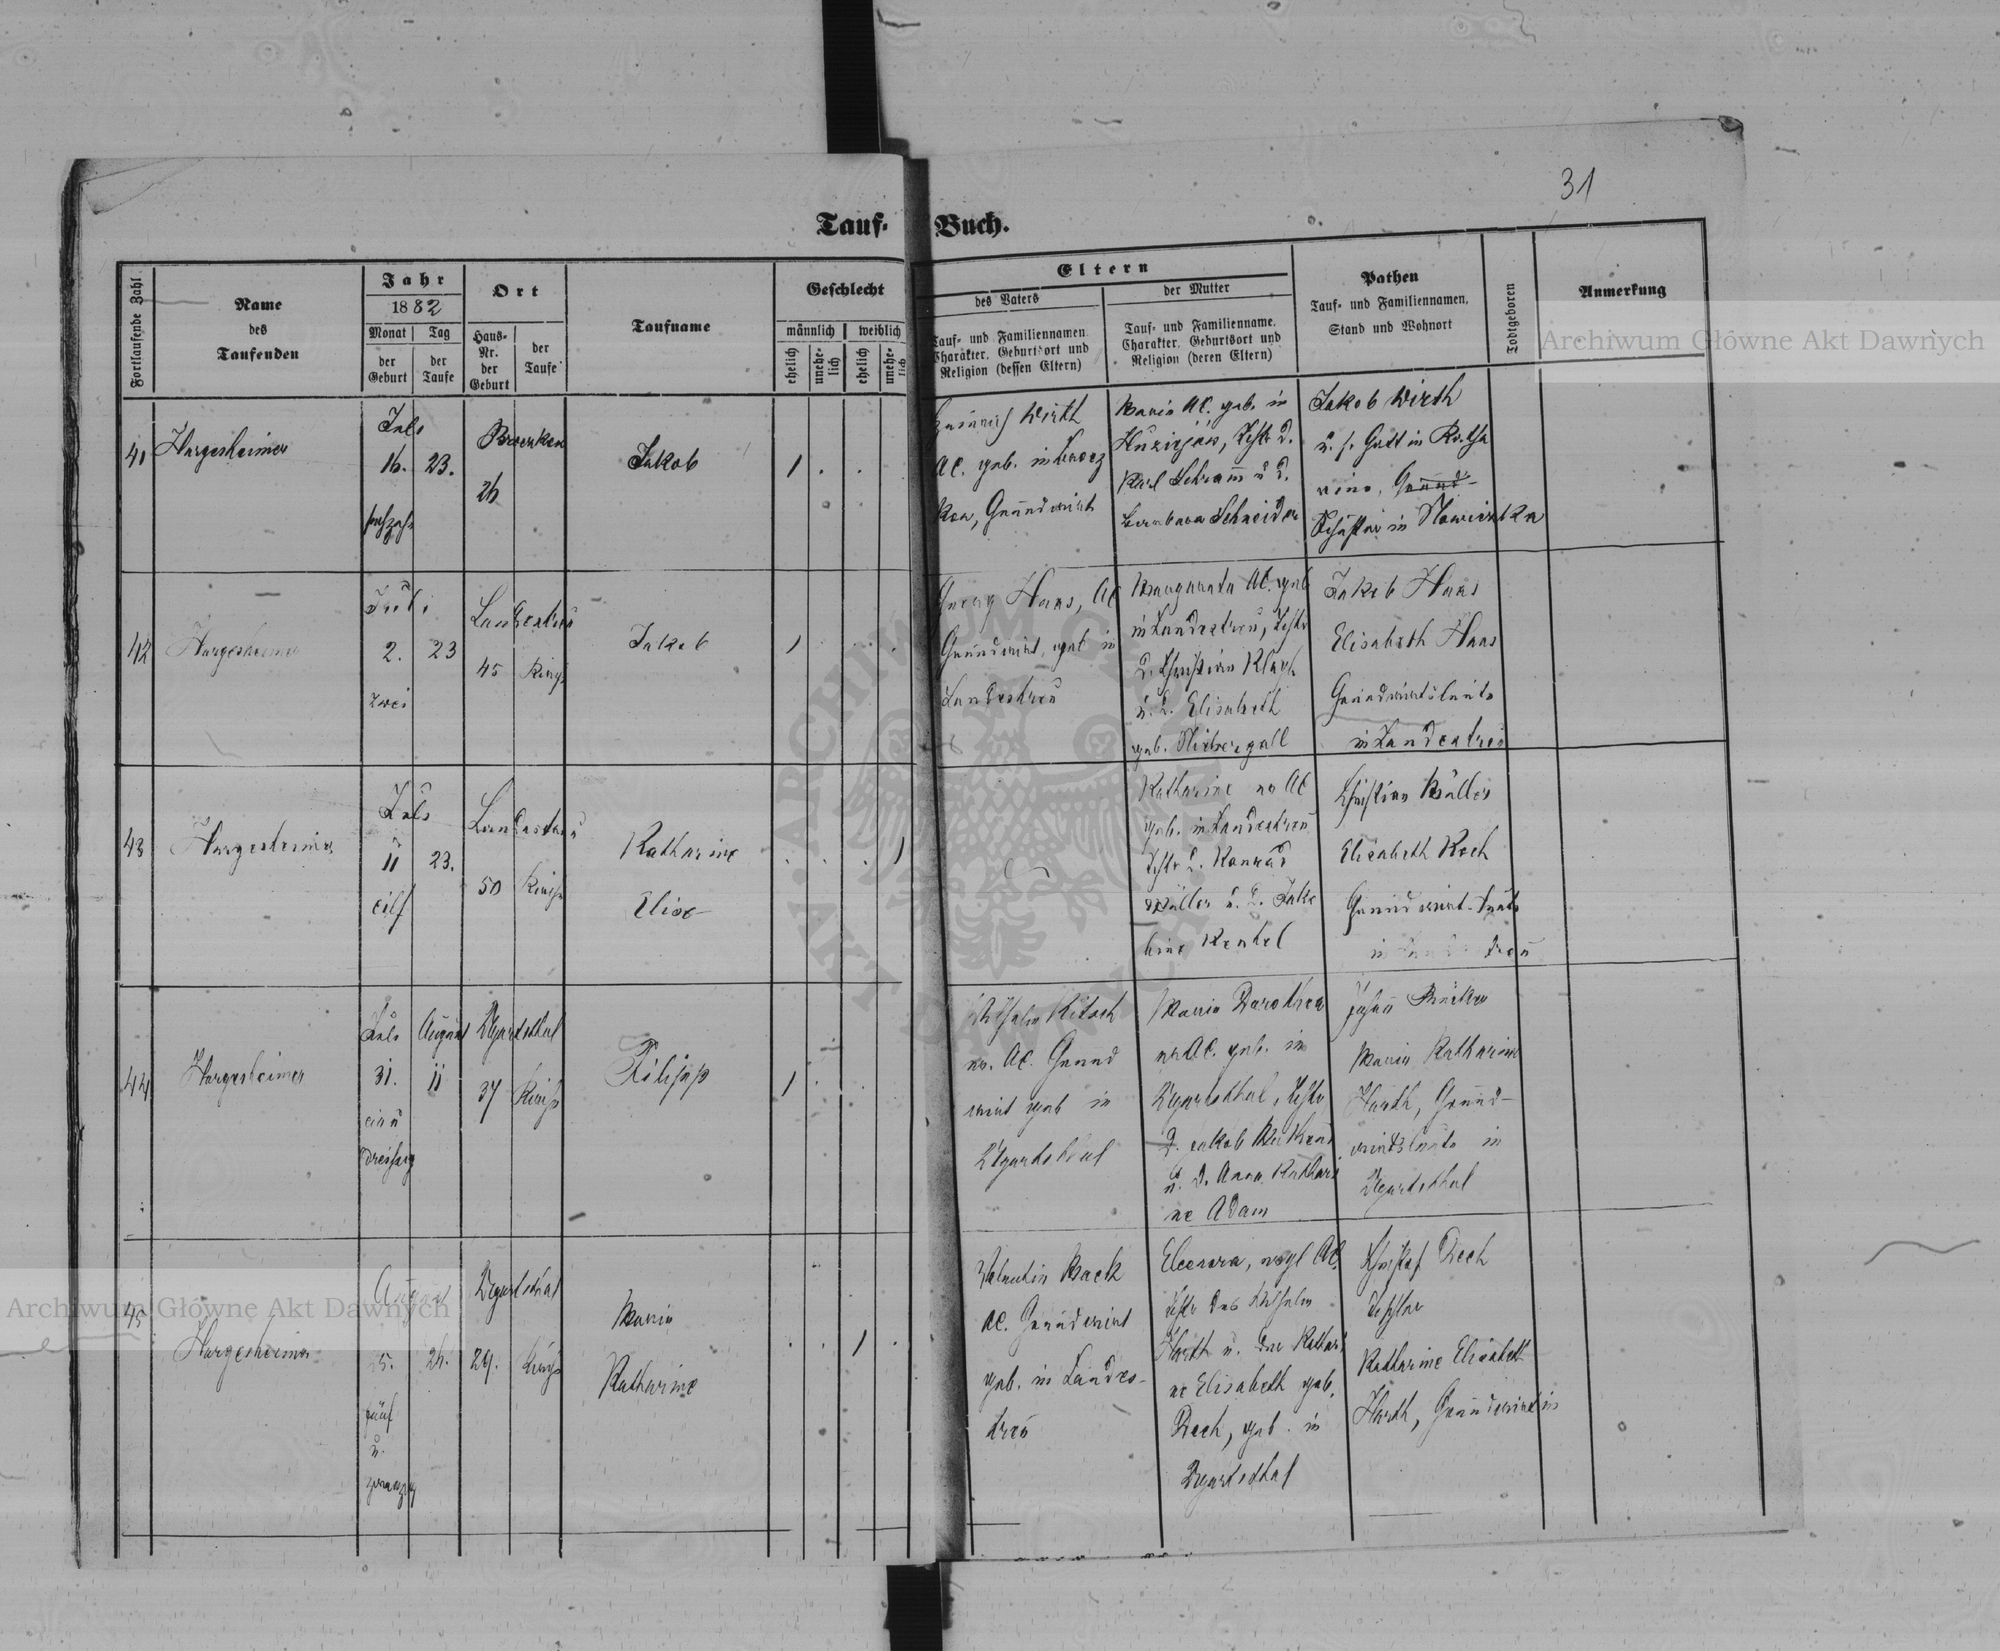 31
Tauf- Buch.
Fortlaufende Zahl
Name
des
Taufenden
Jahr
1882
Monat Tag
der Geburt
der Taufe
Ort
Haus-Nr. der Geburt
der Taufe
Taufname
Geschlecht
männlich weiblich
ehelich
unehe-lich
ehelich
unehe-lich
Eltern
des Vaters
Tauf- und Familiennamen,
Charakter, Geburtsort und
Religion (dessen Eltern)
der Mutter
Tauf- und Familienname,
Charakter, Geburtsort und
Religion (deren Eltern)
Pathen
Tauf- und Familiennamen,
Stand und Wohnort
Todtgeboren
Anmerkung
41
Hargesheimer
Juli
16. 23.
sechzehn
26
Jakob
1
Heinrich Wirth
AC. geb. in
Grundwirt
Maria AC. geb. in
Tchtr d.
Karl Schramm u d.
Barbara Schneider
Jakob Wirth
u. s. Gattin Katha
rina, Grund-
in Nowicatka
42
Hargesheimer
Juli
2. 23
zwei
Landestreu
45 Kirche
Jakob
1
Georg Haas, AC
Grundwirt, geb in
Landestreu
Margareta AC. geb
in Landestreu, Tchtr
d. Christian
u. d. Elisabeth
geb. Niebergall
Jakob Haas
Elisabeth Haas
Grundwirtsleute
in Landestreu
43
Hargesheimer
Juli
11 23.
eilf
Landestreu
50 Kirche
Katharine
Elise
1
Katharine ev AC
geb. in Landestreu
Tchtr d. Konrad
Müller u. d. Jako
bine
Christian Müller
Elisabeth Koch
Grundwirt-Leute
in Landestreu
44
Hargesheimer
Juli August
31. 11
ein u
dreissig
Ugartsthal
37 Kirche
Filipp
1
Wilhelm
ev. AC. Grund
wirt geb in
Ugartsthal
Maria Dorothea
ev AC. geb. in
Ugartsthal, Tchtr
d. Jakob
u. d. Anna Kathari
ne Adam
Johann
Maria Katharine
Harth, Grund-
wirtsleute in
Ugartsthal
45
Hargesheimer
August
25. 26.
fünf
u.
zwanzig
Ugartsthal
29. Kirche
Maria
Katharine
1
Valentin Mack
AC. Grundwirt
geb. in Landes-
treu
Eleonora, evgl AC.
Tchtr des Wilhelm
Harth u. der Kathari
ne Elisabeth geb.
Rech, geb. in
Ugartsthal
Christof Rech
Katharine Elisabeth
Harth, Grundwirtin
Archiwum Główne Akt Dawnych
Archiwum Główne Akt Dawnych